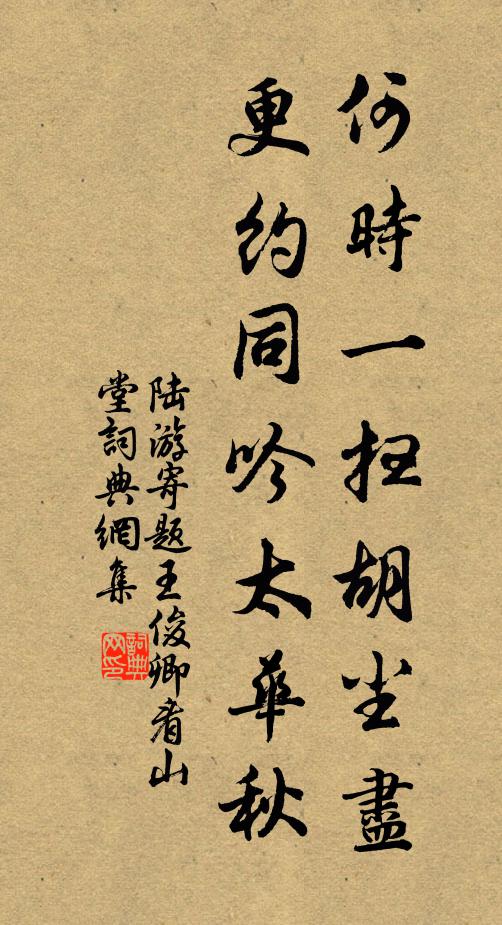 何時一扫胡尘盡
更約同吟太華秋
陆游寄题王俊卿看山
堂詞典網集
詞典网印